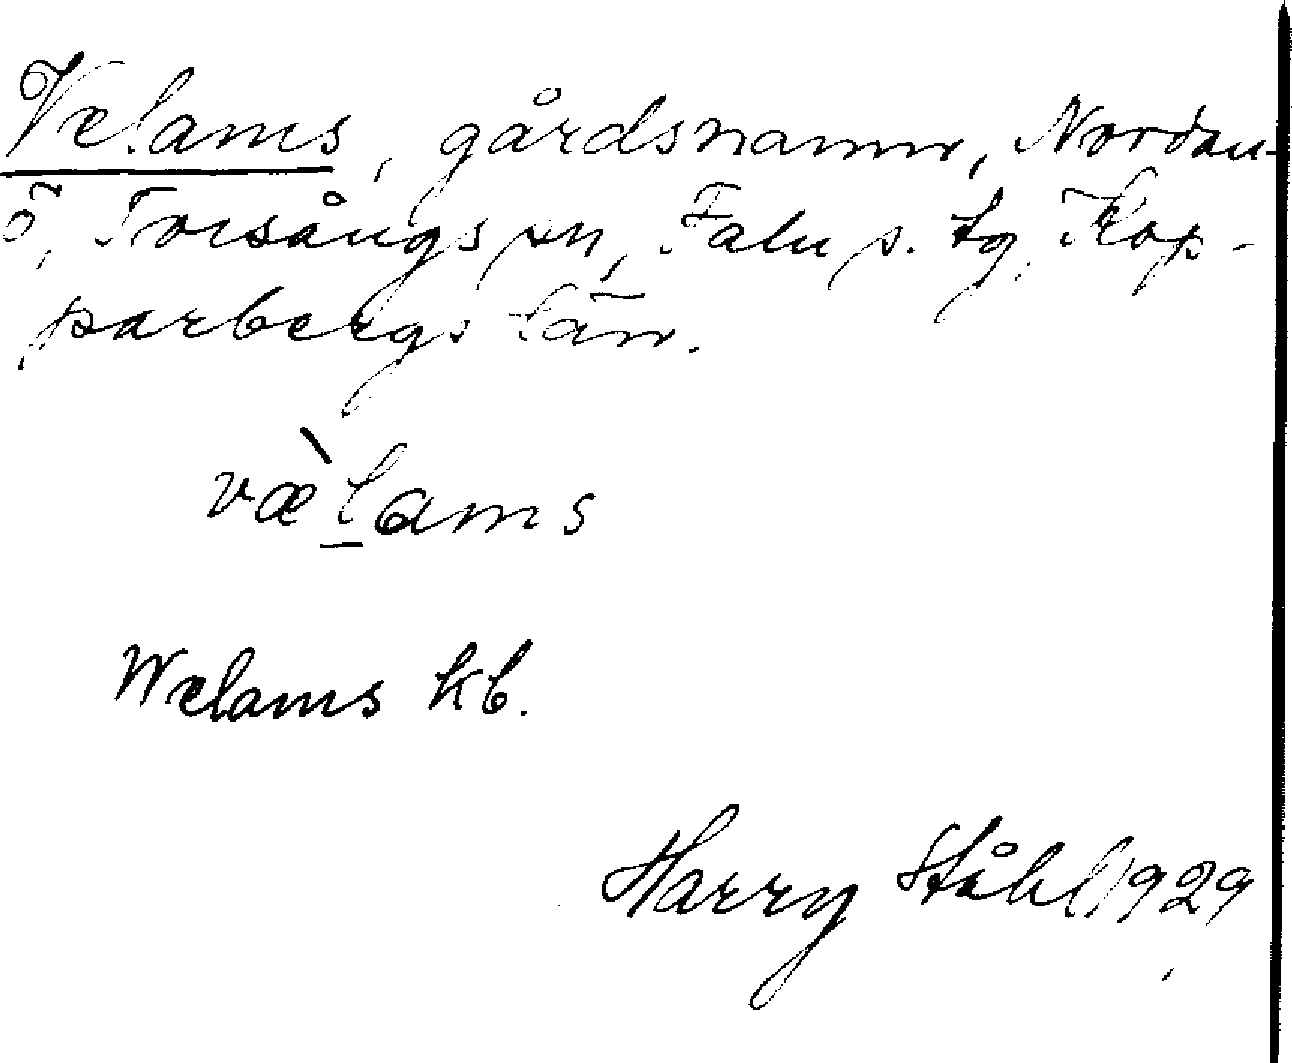 Velams, gårdsnamn, Nordan-
ö, Torsångs sn, Falu s. tg, Kop-
parbergs län.
væ̀l̠ams
Welams kb.
Harry Ståhl 1929